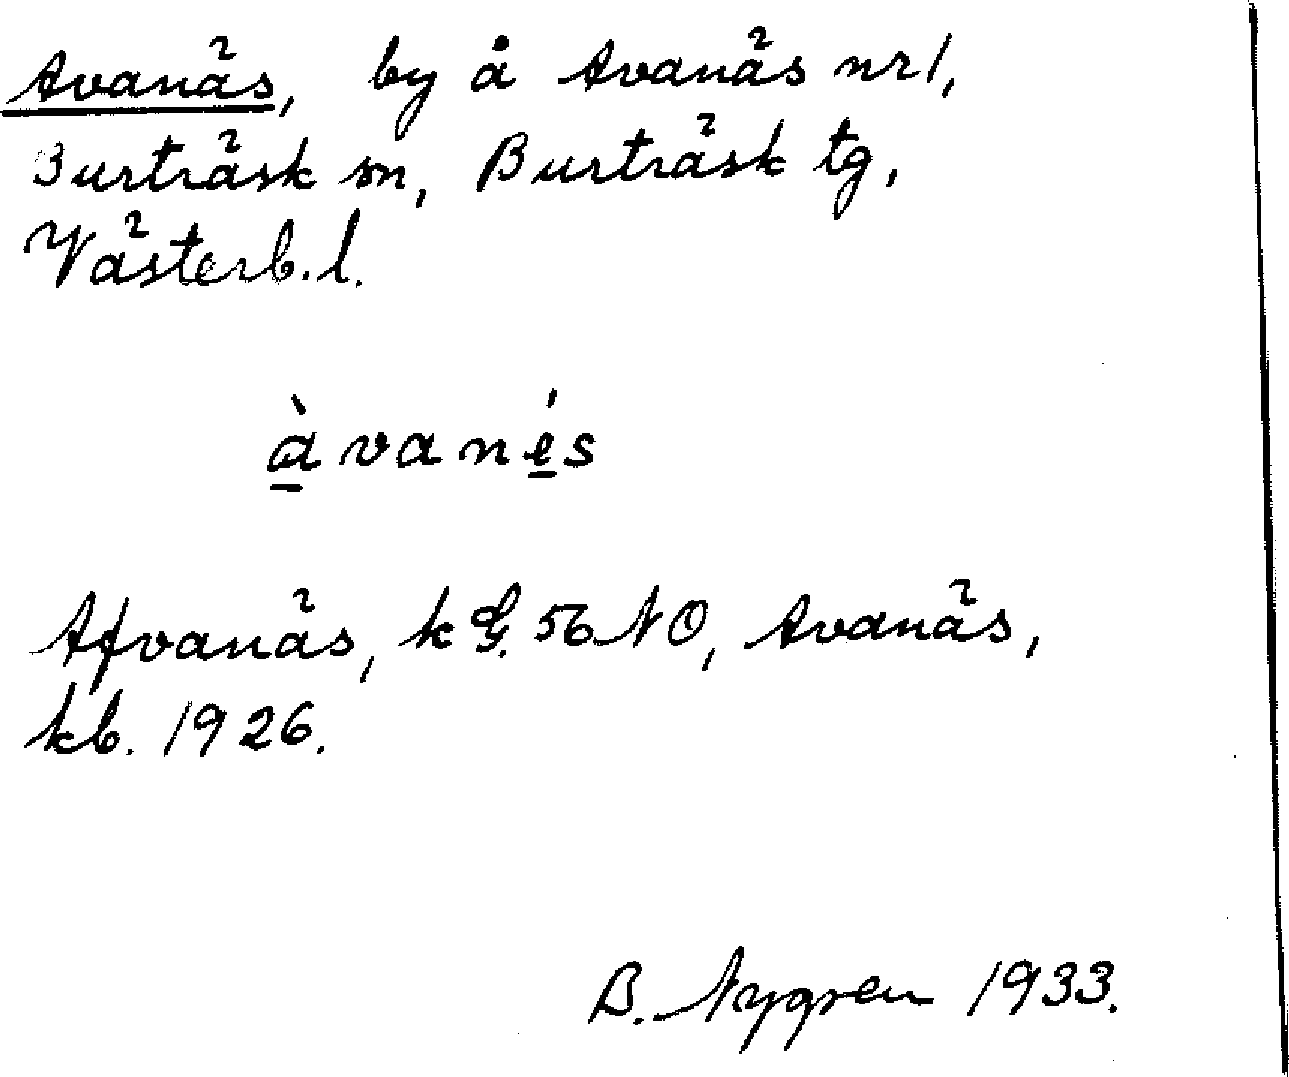 Avanäs, by å Avanäs nr 1,
Burträsk sn, Burträsk tg,
Västerb. l.
à̱vané̱s
Afvanäs, k G. 56 NO, Avanäs,
kb. 1926.
B. Nygren 1933.